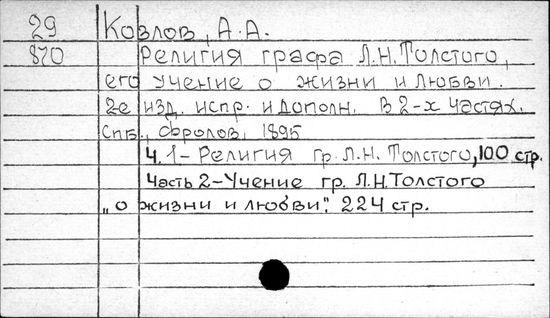 29 Козлов, А.А.
870 Религия графа Л.Н.Толстого,
его учение о жизни и любви.
2-е изд. испр. и дополн. В 2-х частях.
Спб., Фролов, 1895
Ч. 1- Религия гр. Л.Н. Толстого, 100 стр.
Часть 2-Учение гр. Л.Н.Толстого
„о жизни и любви". 224 стр.